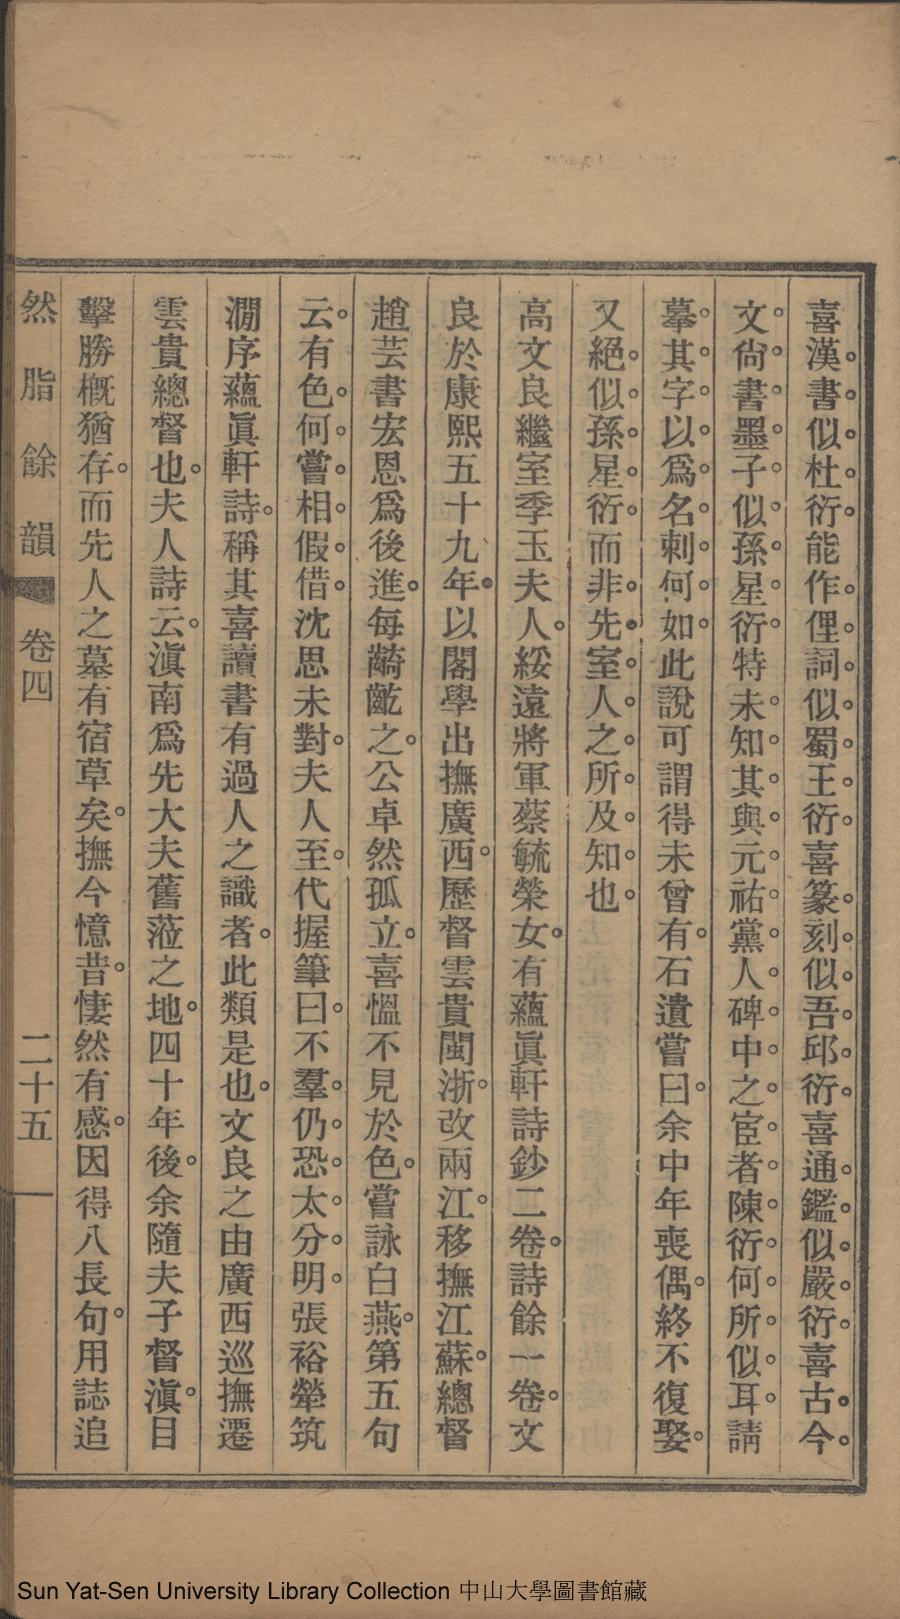 喜漢書。似杜衍。能作俚詞。似蜀王衍。喜篆刻。似吾邱衍。喜通鑑。似嚴衍。喜古今
文尙書墨子。似孫星衍。特未知其與元祐黨人碑中之宦者陳衍何所似耳。請
摹其字以爲名刺何如。此說可謂得未曾有。石遺嘗曰。余中年喪偶。終不復娶。
又絕似孫星衍。而非先室人之所及知也。
高文良繼室季玉夫人。綏遠將軍蔡毓榮女。有蘊眞軒詩鈔二卷。詩餘一卷。文
良於康熙五十九年。以閣學出撫廣西。歷督雲貴閩浙。改兩江。移撫江蘇。總督
趙芸書宏恩爲後進。每齮齕之。公卓然孤立。喜慍不見於色。嘗詠白燕。第五句
云。有色何嘗相假借。沈思未對。夫人至。代握筆曰。不羣仍恐太分明。張裕犖筑
澗序蘊眞軒詩。稱其喜讀書有過人之識者。此類是也。文良之由廣西巡撫遷
雲貴總督也。夫人詩云。滇南爲先大夫舊蒞之地。四十年後。余隨夫子督滇。目
擊勝槪猶存。而先人之墓有宿草矣。撫今憶昔。悽然有感。因得八長句。用誌追
然脂餘韻 卷四 二十五
Sun Yat-Sen University Library Collection 中山大學圖書館藏